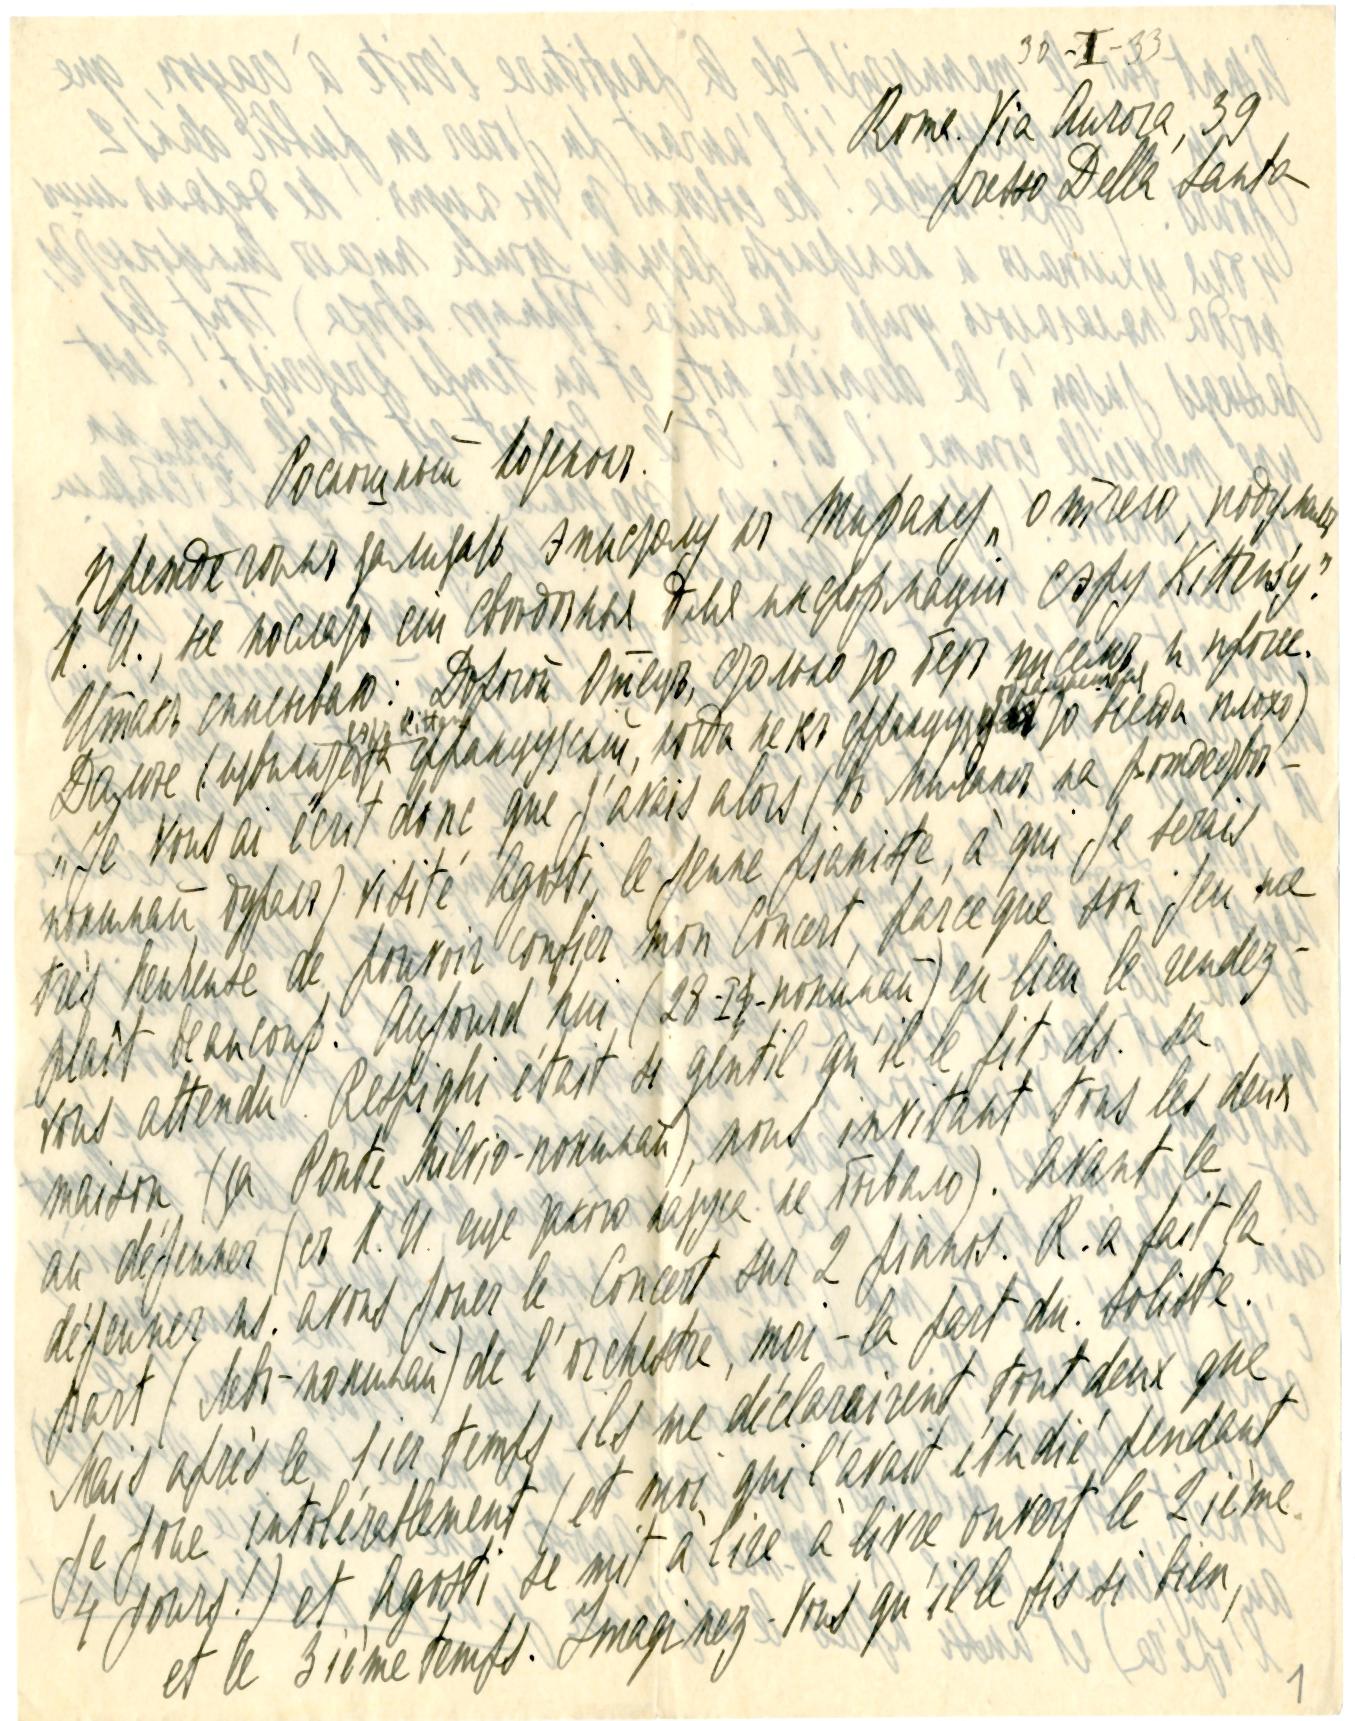 30-I-33
Rome. Via Aurora, 39
presso Della Santa
Роскошный
прежде чѣмъ эпистолу къ Тирану, „отчего, подумалъ
Л. И., не послать ей свѣдѣнья для информаціи сэру Kitten'у?"
Итакъ списываю: Дорогой Отецъ, столько-то безъ писемъ, и проч.
Далѣе французскій, когда не къ то всегда плохо)
„Je vous ai écrit donc que j'avais alors (въ Миланѣ на рождествѣ-
понимай ) visité Agosti, le jeune pianiste, à qui je serais
très heureuse de pouvoir confier mon Concert, parceque son jeu me
plaît beaucoup. Aujourd'hui (28-I-понимай) eu lieu le rendez-
vous attendu. Respighi était si gentil qu'il le fit ds. sa
maison (за Ponte Milvio-понимай), nous invitant tous les deux
au déjeuner (съ Л. И. еще такого не бывало). Avant le
déjeuner ns. avons jouer le Concert sur 2 pianos. R. a fait la
part ( -понимай) de l'orchestre, moi - la part du soliste.
Mais après le 1ier temps ils me déclarairent tout deux que
je joue intolérablement (et moi qui l'avait étudié pendant
4 jours!) et Agosti se mit à lire à livre ouvert le 2ième
et le 3ième temps. Imaginez-vous qu'il le fis si bien,
1